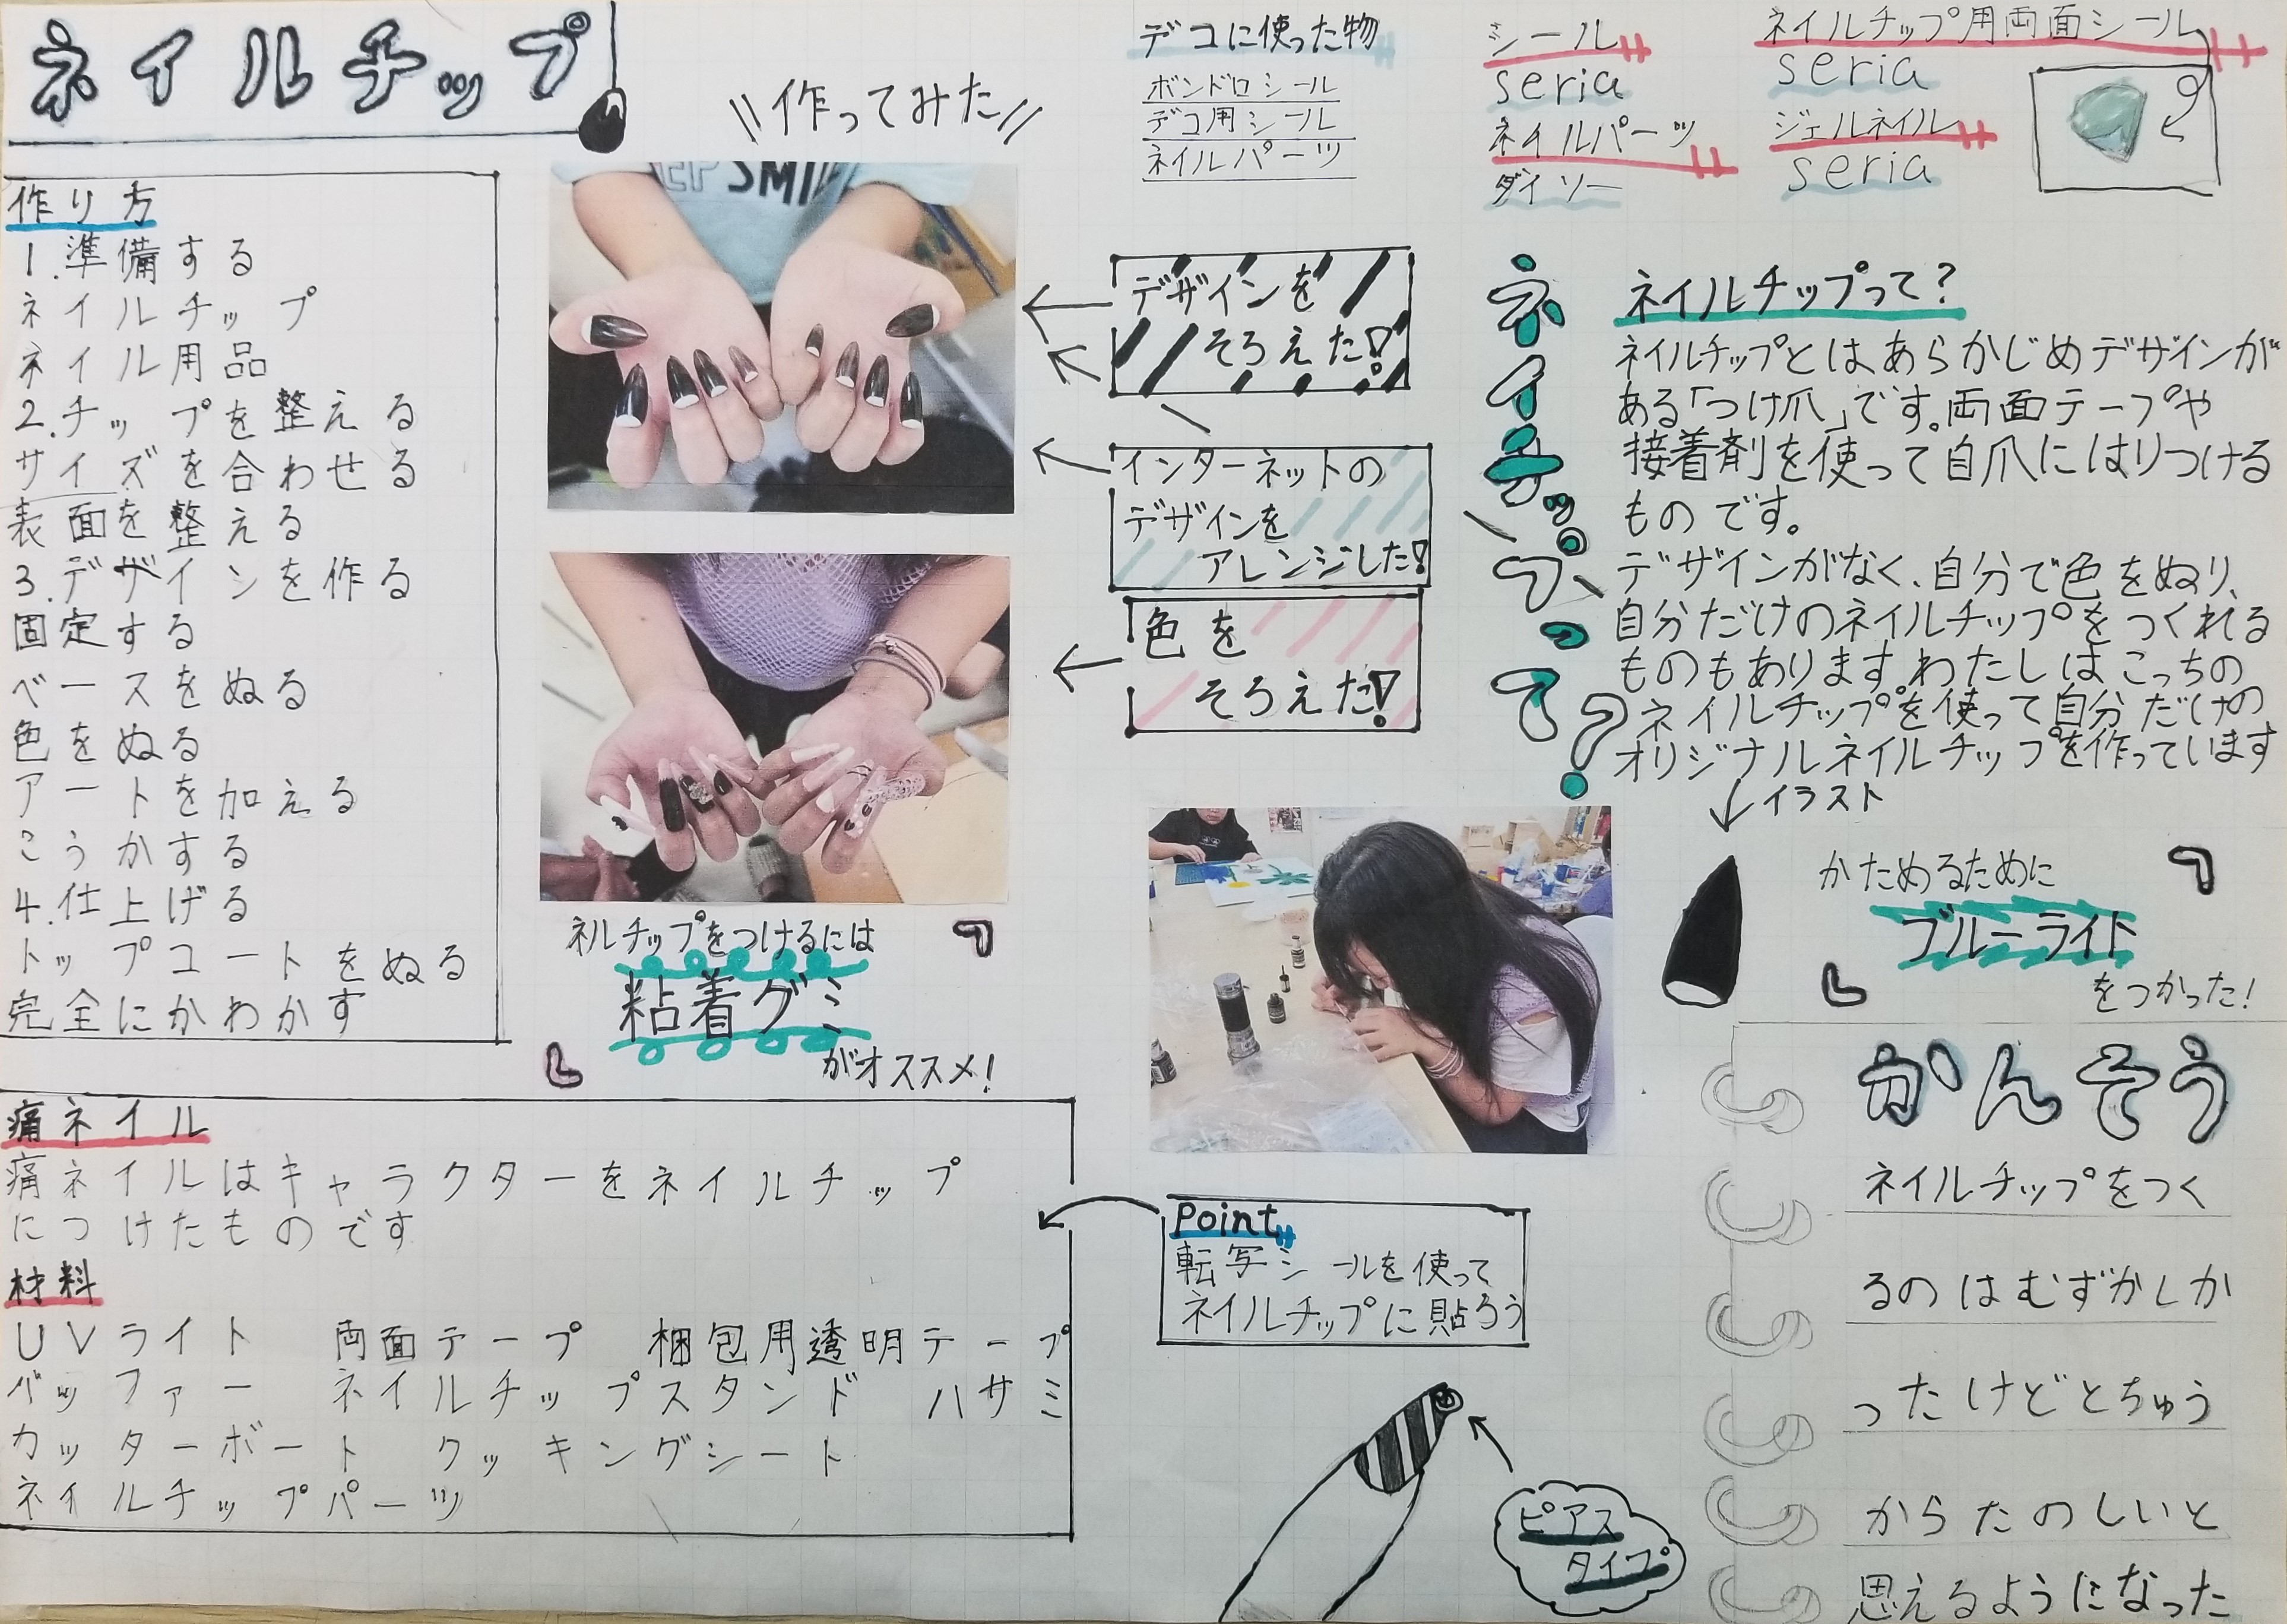 ネイルチップ
\\作ってみた//
作り方
1.準備する
ネイルチップ
ネイル用品
2.チップを整える
サイズを合わせる
表面を整える
3.デザインを作る
固定する
ベースをぬる
色をぬる
アートを加える
こうかする
4.仕上げる
トップコートをぬる
完全にかわかす
デコに使った物
ボンドロシール
デコ用シール
ネイルパーツ
シール
seria
ネイルパーツ
ダイソー
ネイルチップ用両面シール
seria
ジェルネイル
seria
デザインを
そろえた!
インターネットの
デザインを
アレンジした!
色を
そろえた!
ネイチップって?
ネイルチップって?
ネイルチップとはあらかじめデザインが
ある「つけ爪」です。両面テープや
接着剤を使って自爪にはりつける
ものです。
デザインがなく、自分で色をぬり、
自分だけのネイルチップをつくれる
ものもあります。わたしはこっちの
ネイルチップを使って自分だけの
オリジナルネイルチップを作っています
イラスト
ネルチップをつけるには
粘着グミ
がオススメ!
かためるために
ブルーライト
をつかった!
痛ネイル
痛ネイルはキャラクターをネイルチップ
につけたものです
材料
UVライト 両面テープ 梱包用透明テープ
バッファー ネイルチップスタンド ハサミ
カッターボート クッキングシート
ネイルチップパーツ
Point
転写シールを使って
ネイルチップに貼ろう
ピアス
タイプ
かんそう
ネイルチップをつく
るのはむずかしか
ったけどとちゅう
からたのしいと
思えるようになった